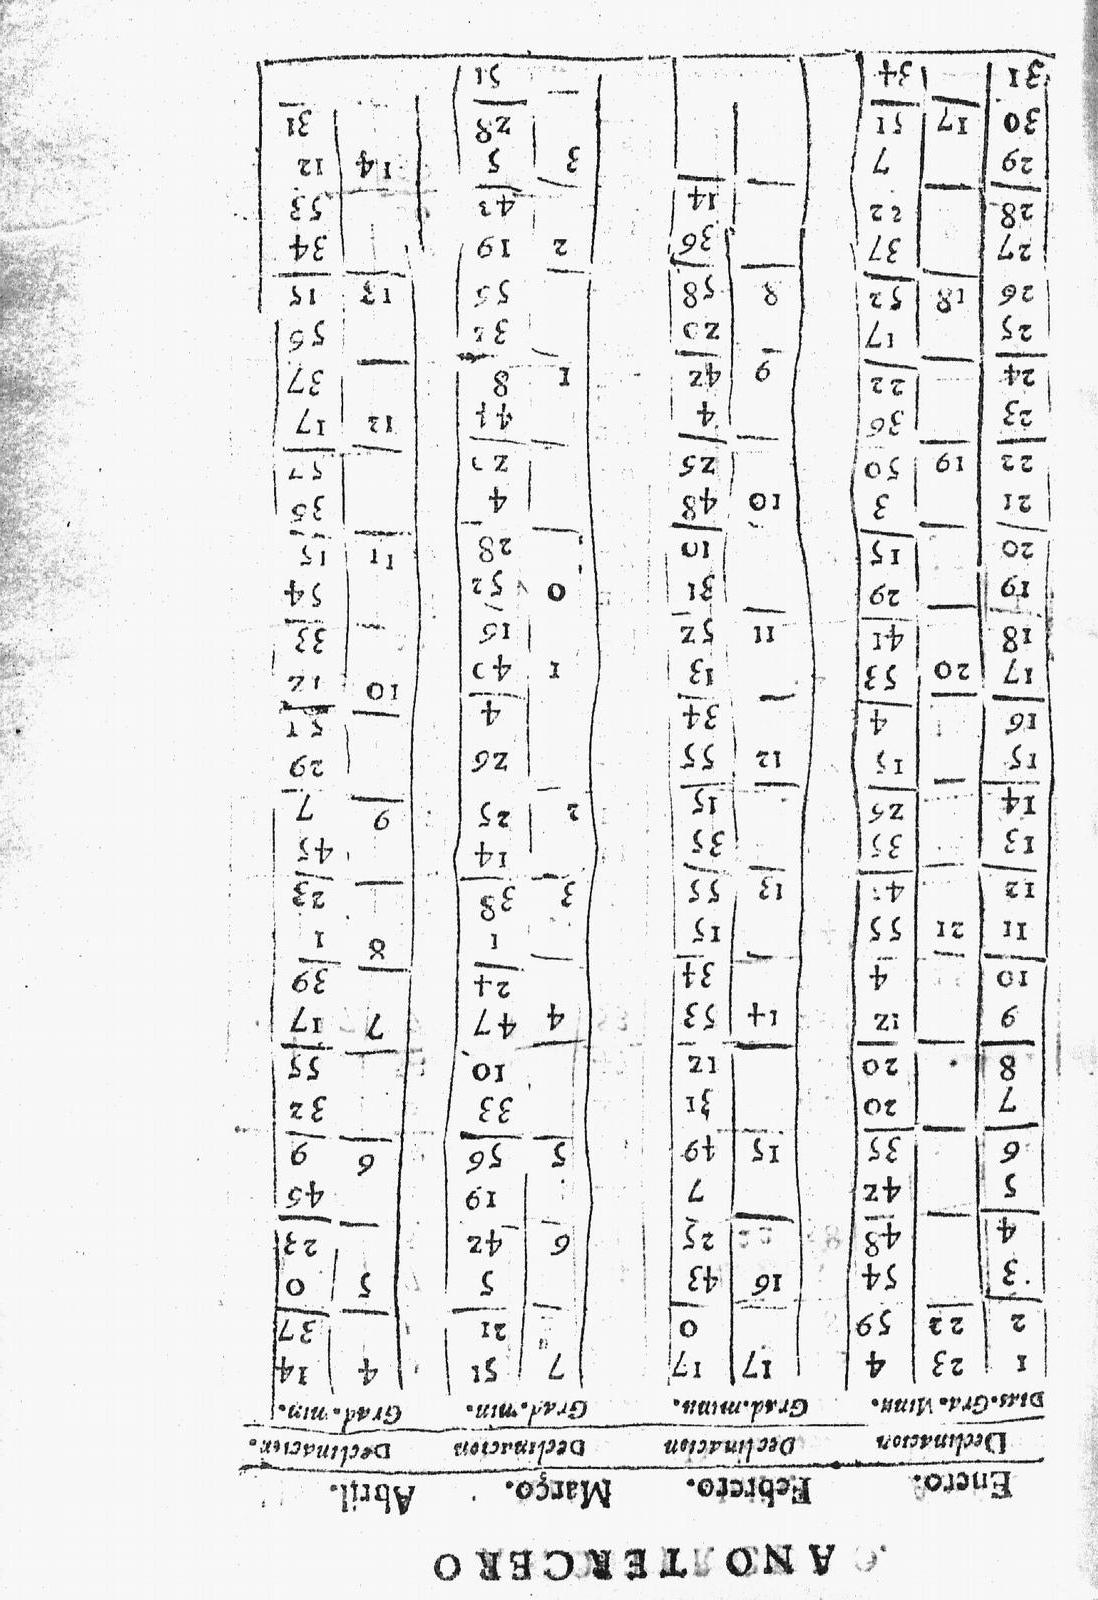 ANO TERCERO
Enero. Febrero. Março. Abril.
Declinacion Declinacion Declinacion Declinacion.
Dias. Gra. Minu. Grad. minu. Grad. min. Grad. min.
1 23 4 17 17 7 51 4 14
2 22 59 0 21 37
3 54 16 43 5 5 0
4 48 25 6 42 23
5 42 7 19 45
6 35 15 49 5 56 6 9
7 20 31 33 32
8 20 12 10 55
9 12 14 53 4 47 7 17
10 4 34 24 39
11 21 55 15 1 8 1
12 13 55 3 38 23
13 35 35 14 45
14 26 15 2 25 9 7
15 15 12 55 26 29
16 4 34 4 51
17 20 53 13 1 40 10 12
18 41 11 52 16 33
19 29 31 0 52 54
20 15 10 28 11 15
21 3 10 48 4 36
22 19 50 25 20 57
23 36 4 44 12 17
24 22 9 42 1 8 37
25 17 20 32 56
26 18 52 8 58 56 13 15
27 37 36 2 19 34
28 22 14 43 53
29 7 3 5 14 12
30 17 51 28 31
31 34 51